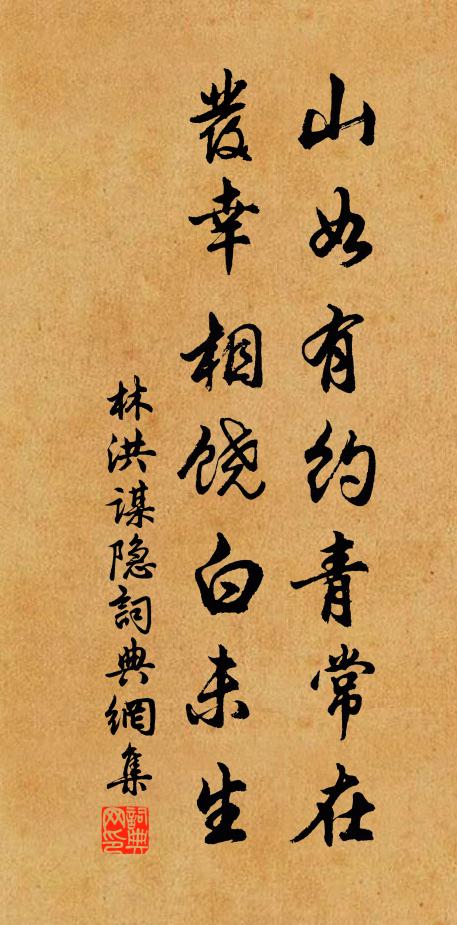 山如有约青常在
發幸相饶白未生
林洪謀隐詞典網集
詞典网印